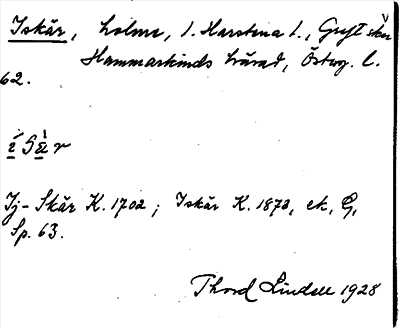 Iskär, holme, i Harstena s., Gryt skn
Hammarkinds härad, Österg. l.
62.
Ij-Skär K. 1702; Iskär K. 1873, ek, G,
Sp. 63.
Thord Lindell 1928